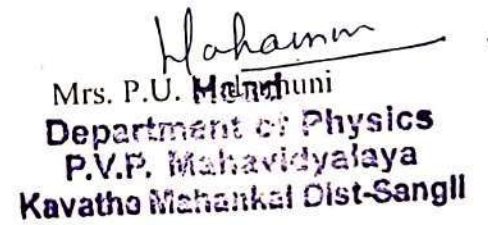 Mrs. P.U. Head
Department of Physics
P.V.P. Mahavidyalaya
Kavathe Mahankal Dist-Sangli